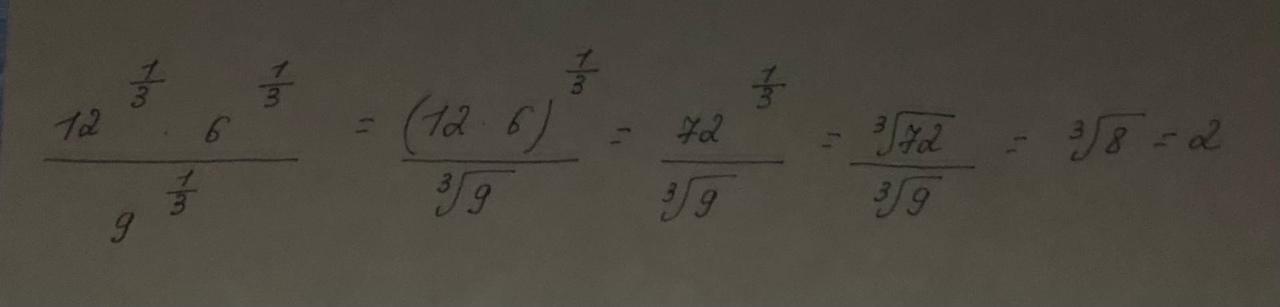 \frac{12^{\frac{1}{3}} \cdot 6^{\frac{1}{3}}}{9^{\frac{1}{3}}} = \frac{(12 \cdot 6)^{\frac{1}{3}}}{\sqrt[3]{9}} = \frac{72^{\frac{1}{3}}}{\sqrt[3]{9}} = \frac{\sqrt[3]{72}}{\sqrt[3]{9}} = \sqrt[3]{8} = 2